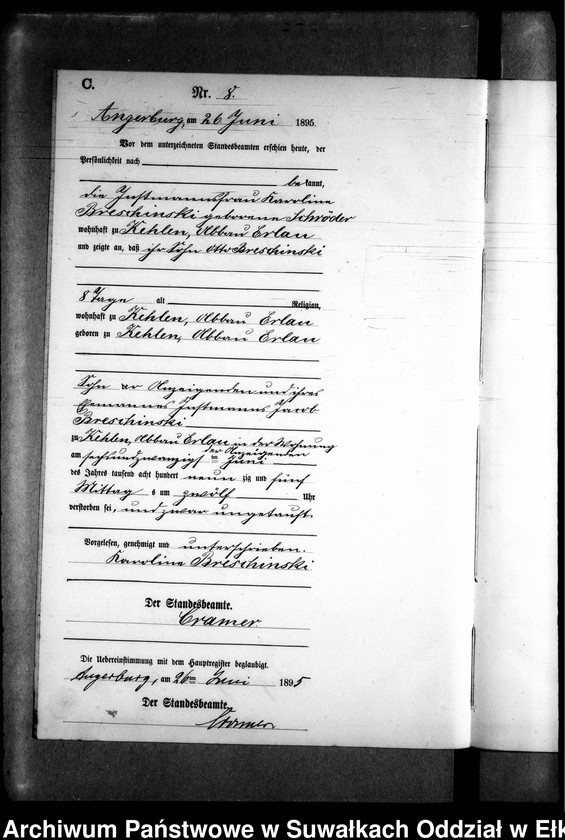 C.
Nr. 8.
Angerburg, am 26 Juni 1895.
Vor dem unterzeichneten Standesbeamten erschien heute, der
Persönlichkeit nach
be kannt,
die Instmannsfrau Karoline
Breschinski geborene Schröder
wohnhaft zu Kehlen, Abbau Erlau
und zeigte an, daß ihr Sohn Otto Breschinski
8 Tage alt Religion,
wohnhaft zu Kehlen, Abbau Erlau
geboren zu Kehlen, Abbau Erlau
Sohn der Anzeigenden und ihres
Ehemannes Instmanns Jacob
Breschinski
zu Kehlen, Abbau Erlau in der Wohnung
der Anzeigenden
am sechsundzwanzigsten Juni
des Jahres tausend acht hundert neun zig und fünf
Mittag s um zwölf Uhr
verstorben sei, und zwar ungetauft.
Vorgelesen, genehmigt und unterschrieben.
Karoline Breschinski
Der Standesbeamte.
Cramer.
Die Uebereinstimmung mit dem Hauptregister beglaubigt.
Angerburg, am 26ten Juni 1895
Der Standesbeamte.
Cramer
Archiwum Państwowe w Suwałkach Oddział w Ełk